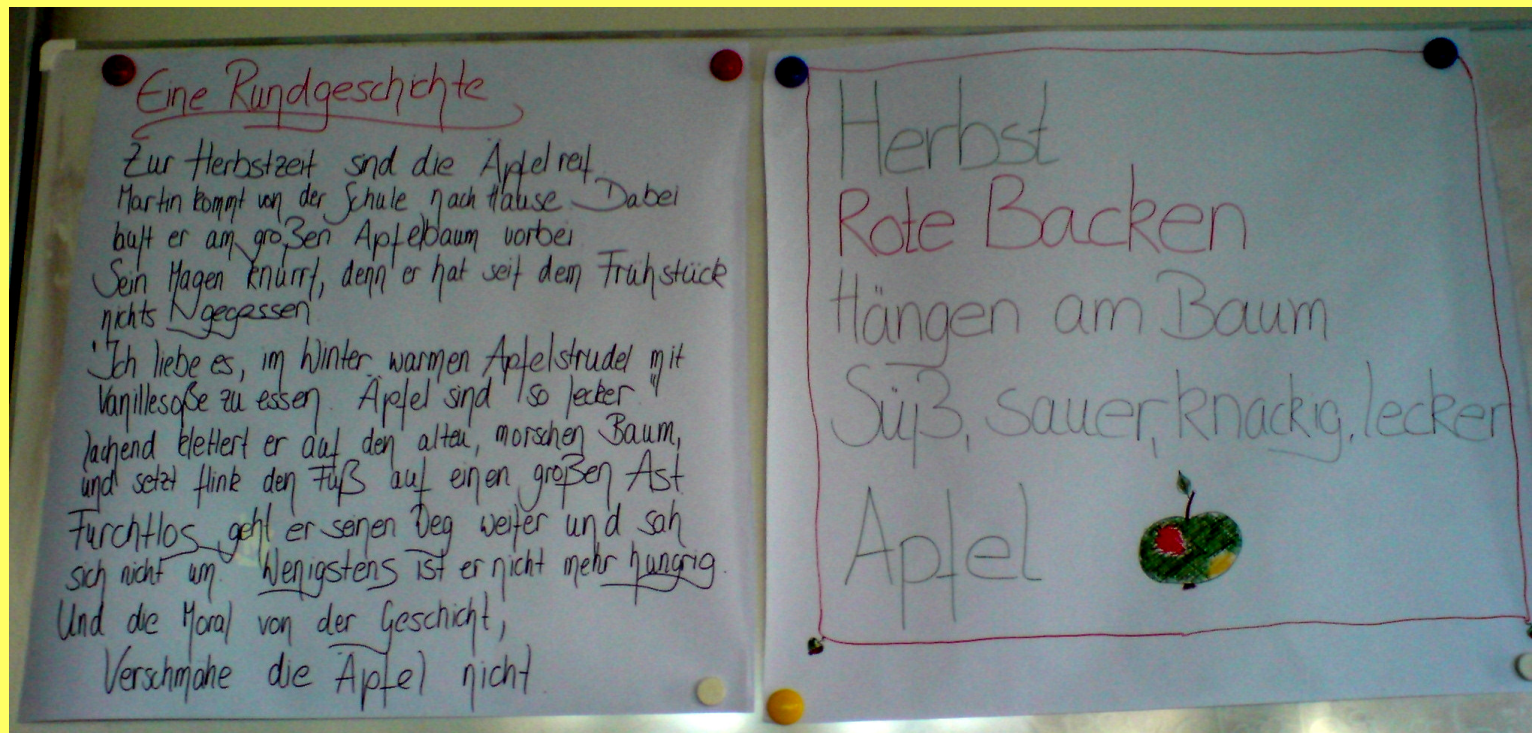 Eine Rundgeschichte
Zur Herbstzeit sind die Äpfel reif.
Martin kommt von der Schule nach Hause. Dabei
läuft er am großen Apfelbaum vorbei.
Sein Magen knurrt, denn er hat seit dem Frühstück
nichts gegessen
"Ich liebe es, im Winter warmen Apfelstrudel mit
Vanillesoße zu essen. Äpfel sind so lecker."
lachend klettert er auf den alten, morschen Baum,
und setzt flink den Fuß auf einen großen Ast.
Furchtlos geht er seinen Weg weiter und sah
sich nicht um. Wenigstens ist er nicht mehr hungrig.
Und die Moral von der Geschicht,
Verschmähe die Äpfel nicht.
Herbst
Rote Backen
Hängen am Baum
Süß, sauer, knackig, lecker
Apfel